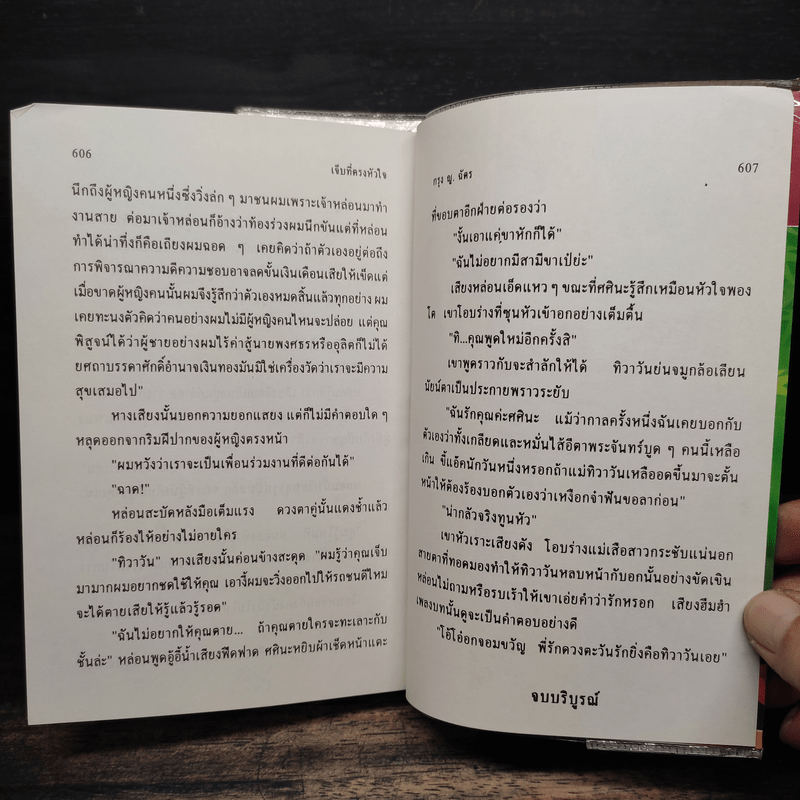 606
เจ็บที่ตรงหัวใจ
นึกถึงผู้หญิงคนหนึ่งซึ่งวิ่งลัก ๆ มาชนผมเพราะเจ้าหล่อนมาทำ
งานสาย ต่อมาเจ้าหล่อนก็อ้างว่าท้องร่วงผมนึกขันแต่ที่หล่อน
ทำได้น่าทึ่งก็คือเถียงผมฉอด ๆ เคยคิดว่าถ้าตัวเองอยู่ต่อถึง
การพิจารณาความดีความชอบอาจลดขั้นเงินเดือนเสียให้เข็ดแต่
เมื่อขาดผู้หญิงคนนั้นผมจึงรู้สึกว่าตัวเองหมดสิ้นแล้วทุกอย่าง ผม
เคยทะนงตัวคิดว่าคนอย่างผมไม่มีผู้หญิงคนไหนจะปล่อย แต่คุณ
พิสูจน์ได้ว่าผู้ชายอย่างผมไร้ค่าสู้นายพงศธรหรืออุลิตก็ไม่ได้
ยศถาบรรดาศักดิ์อำนาจเงินทองมันมิใช่เครื่องวัดว่าเราจะมีความ
สุขเสมอไป"
หางเสียงนั้นบอกความยอกแสยง แต่ก็ไม่มีคำตอบใด ๆ
หลุดออกจากริมฝีปากของผู้หญิงตรงหน้า
"ผมหวังว่าเราจะเป็นเพื่อนร่วมงานที่ดีต่อกันได้"
"ฉาด!"
หล่อนสะบัดหลังมือเต็มแรง ดวงตาคู่นั้นแดงช้ำแล้ว
หล่อนก็ร้องไห้อย่างไม่อายใคร
"ทิวาวัน" หางเสียงนั้นค่อนข้างสะดุด "ผมรู้ว่าคุณเจ็บ
มามากผมอยากชดใช้ให้คุณ เอางี้ผมจะวิ่งออกไปให้รถชนดีไหม
จะได้ตายเสียให้รู้แล้วรู้รอด"
"ฉันไม่อยากให้คุณตาย... ถ้าคุณตายใครจะทะเลาะกับ
ชั้นล่ะ" หล่อนพูดอู้อี้น้ำเสียงฟืดฟาด ศศินะหยิบผ้าเช็ดหน้าแตะ
กรุง ญ. ฉัตร
607
ที่ขอบตาอีกฝ่ายต่อรองว่า
"งั้นเอาแค่ขาหักก็ได้"
"ฉันไม่อยากมีสามีขาเป๋ย่ะ"
เสียงหล่อนเอ็ดแหว ๆ ขณะที่ศศินะรู้สึกเหมือนหัวใจพอง
โต เขาโอบร่างที่ซุนหัวเข้าอกอย่างเต็มตื้น
"ทิ...คุณพูดใหม่อีกครั้งสิ"
เขาพูดราวกับจะสำลักให้ได้ ทิวาวันย่นจมูกล้อเลียน
นัยน์ตาเป็นประกายพราวระยับ
"ฉันรักคุณค่ะศศินะ แม้ว่ากาลครั้งหนึ่งฉันเคยบอกกับ
ตัวเองว่าทั้งเกลียดและหมั่นไส้อีตาพระจันทร์บูด ๆ คนนี้เหลือ
เกิน ขี้แอ็คนักวันหนึ่งหรอกถ้าแม่ทิวาวันเหลืออดขึ้นมาจะตั้น
หน้าให้ต้องร้องบอกตัวเองว่าเหงือกจำฟันขอลาก่อน"
"น่ากลัวจริงทูนหัว"
เขาหัวเราะเสียงดัง โอบร่างแม่เสือสาวกระชับแน่นอก
สายตาที่ทอดมองทำให้ทิวาวันหลบหน้ากับอกนั้นอย่างขัดเขิน
หล่อนไม่ถามหรือรบเร้าให้เขาเอ่ยคำว่ารักหรอก เสียงฮึมฮำ
เพลงบทนั้นดูจะเป็นคำตอบอย่างดี
"โอ้โอ๋อกจอมขวัญ พี่รักดวงตะวันรักยิ่งคือทิวาวันเอย"
จบบริบูรณ์